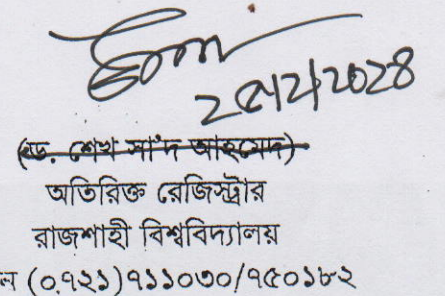 ২৫/২/২০২৪
(ড. শেখ সা'দ আহমেদ)
অতিরিক্ত রেজিস্ট্রার
রাজশাহী বিশ্ববিদ্যালয়
ন (০৭২১)৭১১০৩০/৭৫০১৮২